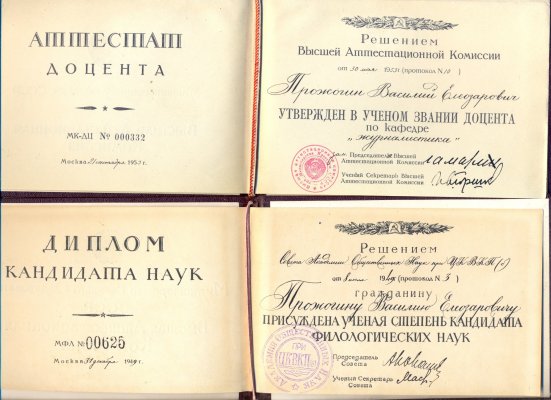 АТТЕСТАТ
ДОЦЕНТА
МК-ДЦ № 000332
Москва 1953 г.
Решением
Высшей Аттестационной Комиссии
от 30 мая 1953 г (протокол №10)
Прожогин Василий Елизарович
УТВЕРЖДЕН В УЧЕНОМ ЗВАНИИ ДОЦЕНТА
по кафедре
„журналистика"
Председатель Высшей
Аттестационной Комиссии
Ученый Секретарь Высшей
Аттестационной Комиссии
ДИПЛОМ
КАНДИДАТА НАУК
МФЛ № 00625
Москва 31 декабря 1949 г.
Решением
Совета Академии Общественных Наук при ЦК ВКП(б)
от 8 1949 (протокол № 3)
гражданину
Прожогину Василию Елизаровичу
ПРИСУЖДЕНА УЧЕНАЯ СТЕПЕНЬ КАНДИДАТА
ФИЛОЛОГИЧЕСКИХ НАУК
Председатель
Совета
Ученый Секретарь
Совета
АКАДЕМИЯ ОБЩЕСТВЕННЫХ НАУК
ПРИ
ЦК ВКП(б)